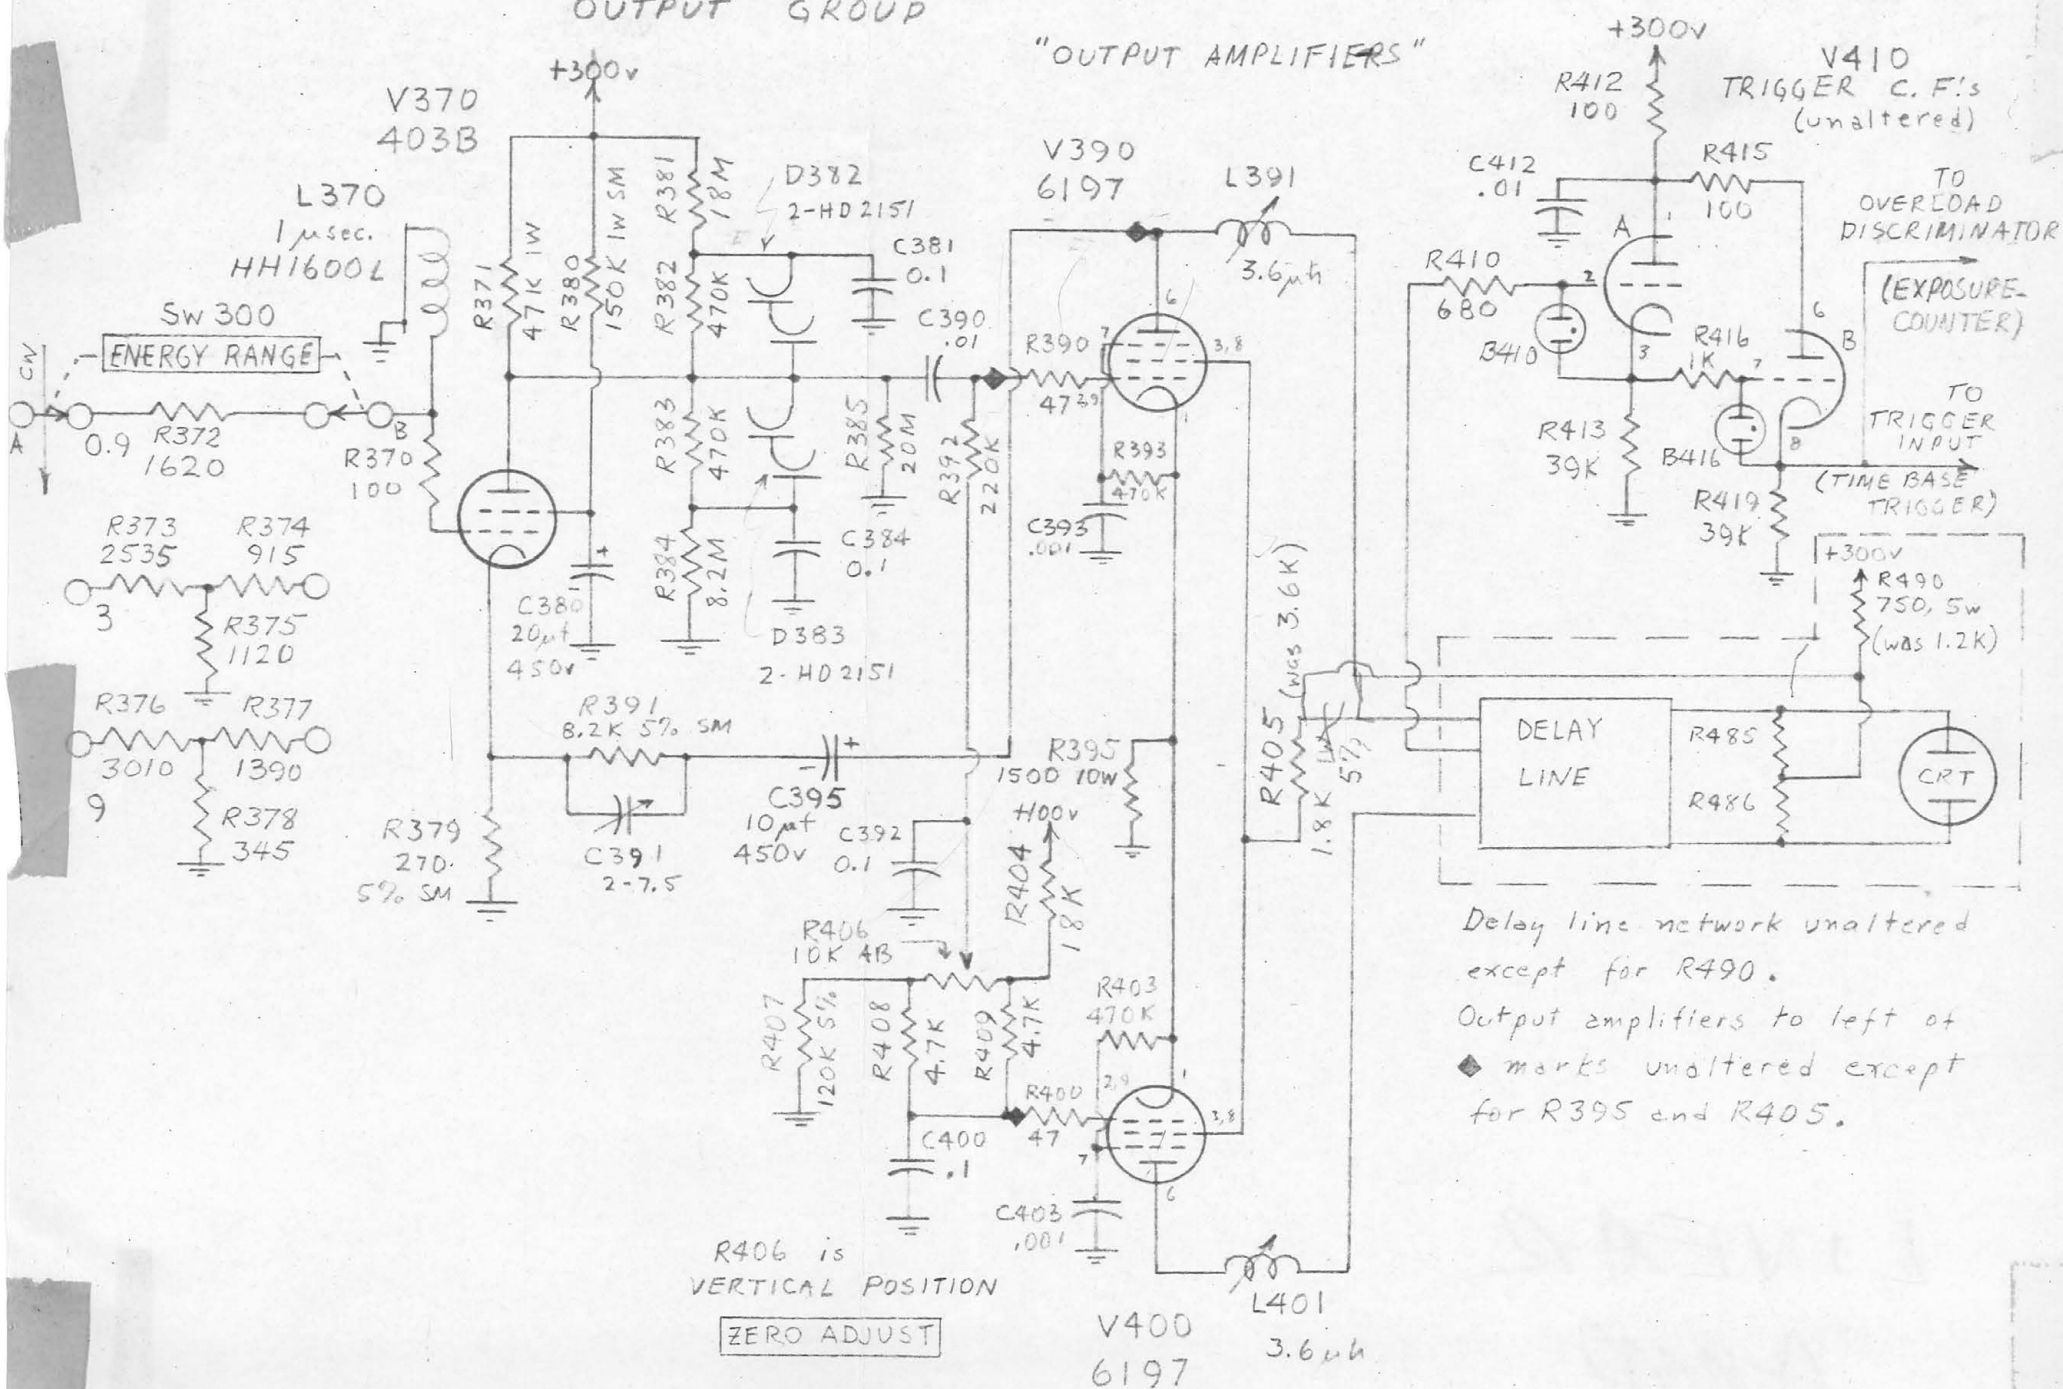 OUTPUT GROUP
"OUTPUT AMPLIFIERS"
+300v
V370
403B
L370
1 μsec.
HH1600L
SW 300
ENERGY RANGE
CW
A
0.9
R372
1620
B
R370
100
R373
2535
R374
915
3
R375
1120
R376
3010
R377
1390
9
R378
345
R371
47K 1W
R380
150K 1W SM
R381
18M
R382
470K
R383
470K
R384
8.2M
D382
2-HD2151
C381
0.1
C384
0.1
D383
2-HD2151
R385
20M
C390
.01
R392
220K
C380
20μf
450v
+
R391
8.2K 5% SM
C391
2-7.5
R379
270
5% SM
- +
C395
10μf
450v
C392
0.1
V390
6197
L391
3.6μh
R390
47
7
2,9
6
3,8
1
R393
470K
C393
.001
R395
1500 10W
+100v
R404
18K
R406
10K AB
R407
120K 5%
R408
4.7K
R409
4.7K
R403
470K
R400
47
2,9
1
3,8
7
6
C400
.1
C403
.001
R406 is
VERTICAL POSITION
ZERO ADJUST
V400
6197
L401
3.6μh
R405 (was 3.6K)
1.8K 1W
5%
+300v
R412
100
V410
TRIGGER C.F.'s
(unaltered)
C412
.01
R415
100
A
1
R410
680
2
B410
3
R416
1K
7
6
B
8
R413
39K
B416
R419
39K
TO
OVERLOAD
DISCRIMINATOR
(EXPOSURE-
COUNTER)
TO
TRIGGER
INPUT
(TIME BASE
TRIGGER)
+300v
R490
750, 5w
(was 1.2K)
DELAY
LINE
R485
R486
CRT
Delay line network unaltered
except for R490.
Output amplifiers to left of
◆ marks unaltered except
for R395 and R405.